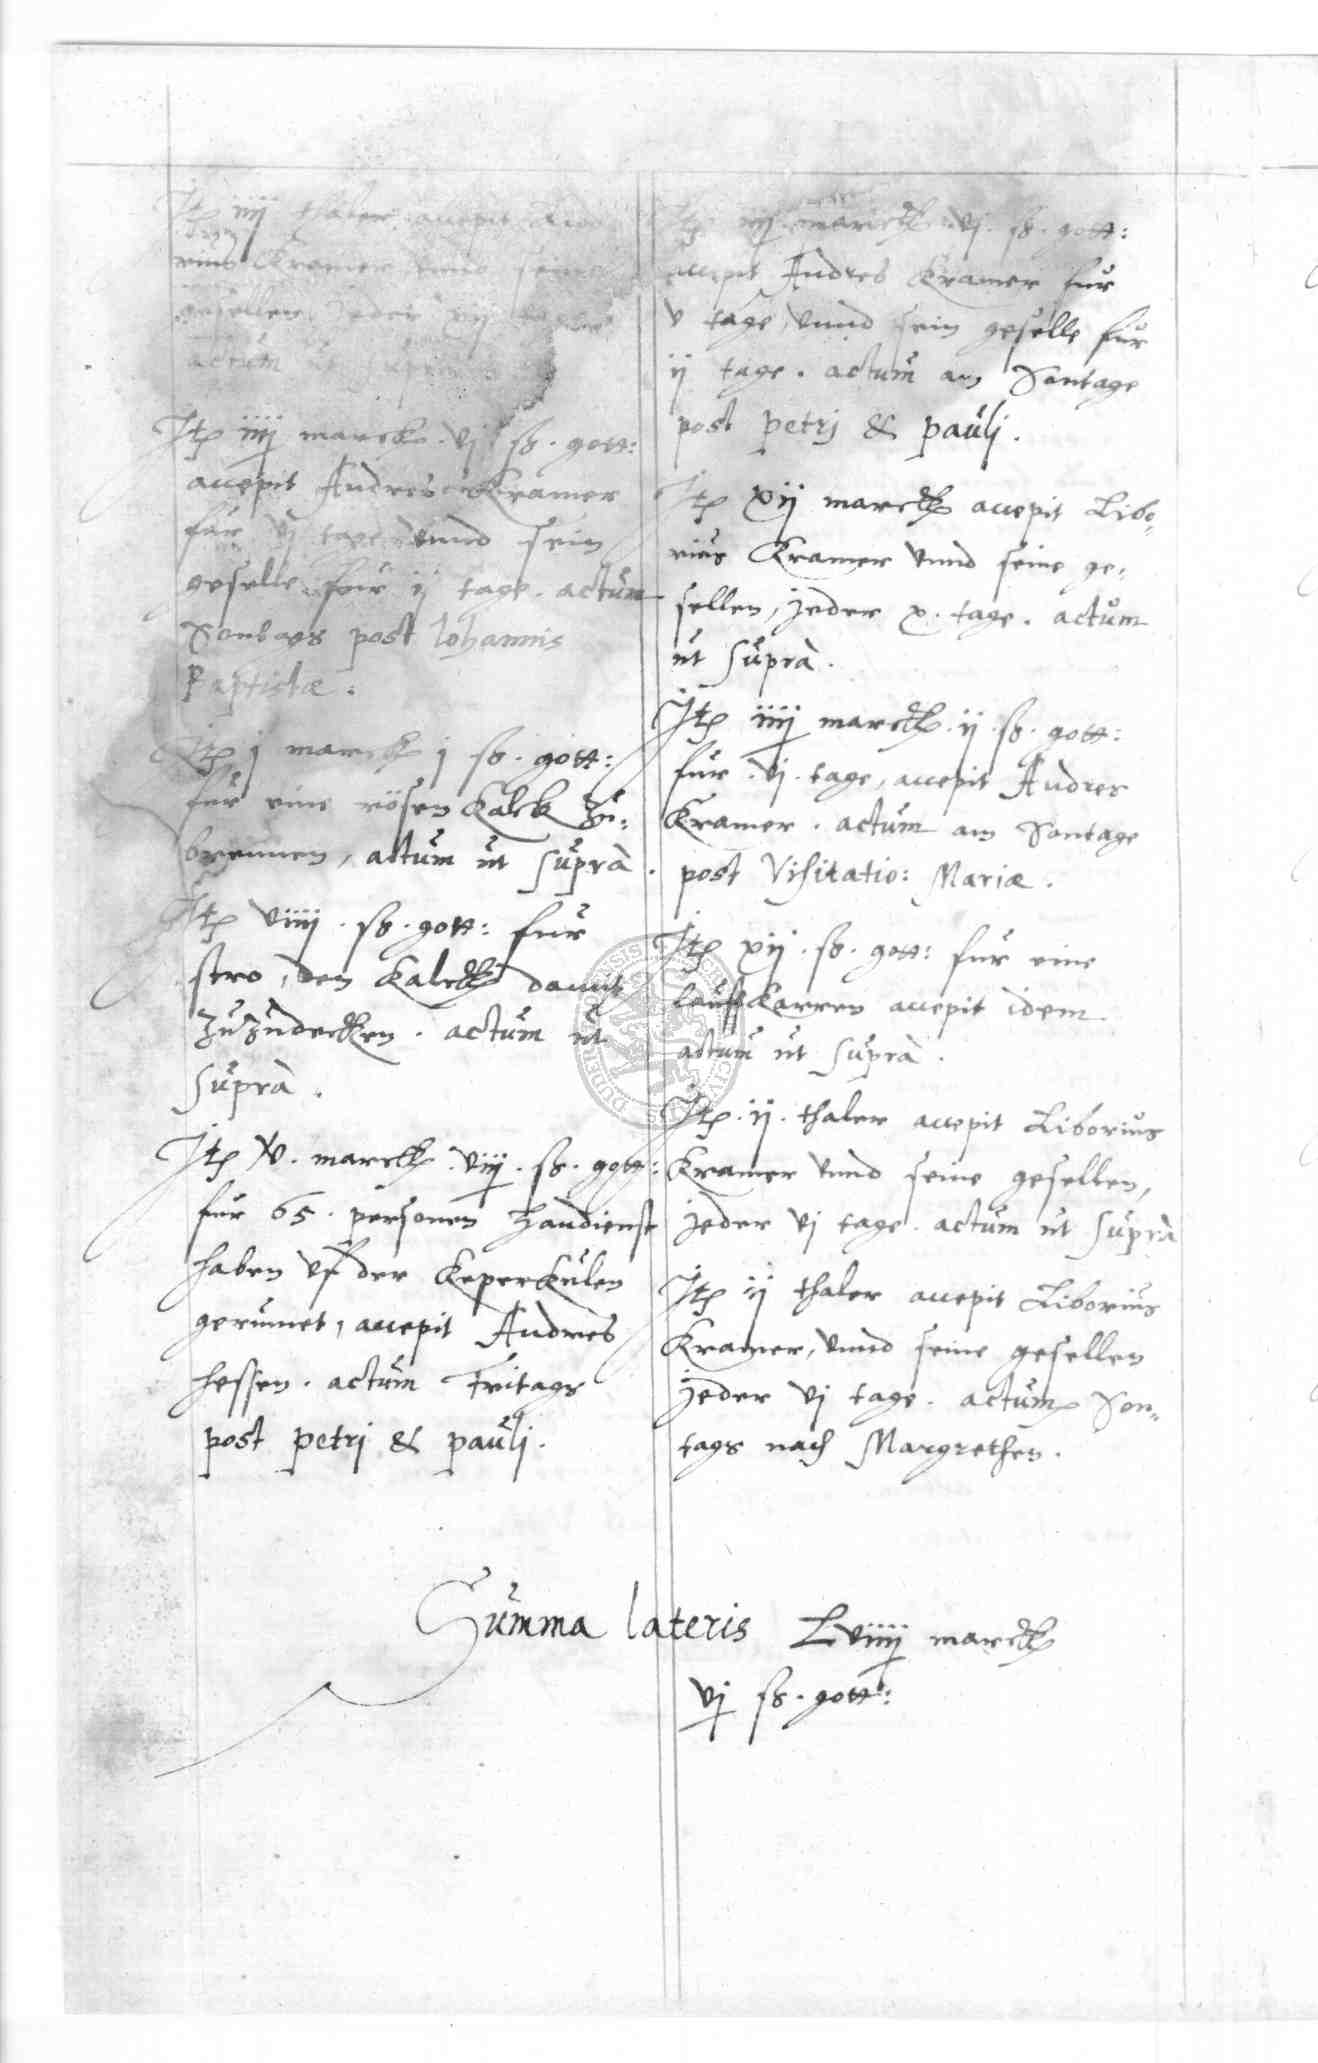 Itē iiij thaler accepit Libo
rius Kramer vnnd seine
gesellen, jeder tage
actum ut supra
Itē iiij marck. vj ß. gott:
accepit Andres Kramer
fur vj tage vnnd sein
geselle fur ij tage. actum
Sontags post Iohannis
Baptistæ.
Itē j marck j ß. gott:
fur eine rösen Kalck zu-
brennen, actum ut supra.
Itē viiij. ß. gott: fur
stro, den Kalck damit
zuzudecken. actum ut
supra.
Itē xv. marck. viij. ß. gott:
fur 65. personen handienst
haben vf der Keperkulen
gerumet, accepit Andres
Hessen. actum Fritags
post petri & pauli.
Itē iiij. marck. vj. ß. gott:
accepit Andres Kramer fur
v tage, vnnd sein geselle fur
ij tage. actum am Sontage
post petri & pauli.
Itē xij marck accepit Libo-
rius Kramer vnnd seine ge-
sellen, jeder x. tage. actum
ut supra.
Itē iiij marck. ij. ß. gott:
fur. vj. tage, accepit Andres
Kramer. actum am Sontage
post Visitatio: Mariæ.
Itē xij. ß. gott: fur eine
lauffkarren accepit idem.
actum ut supra.
Itē. ij. thaler accepit Liborius
Kramer vnnd seine gesellen,
jeder vj tage. actum ut supra
Itē ij thaler accepit Liborius
Kramer, vnnd seine gesellen
jeder vj tage. actum Son-
tags nach Margrethen.
Summa lateris Lviiij marck
vj ß. gott: